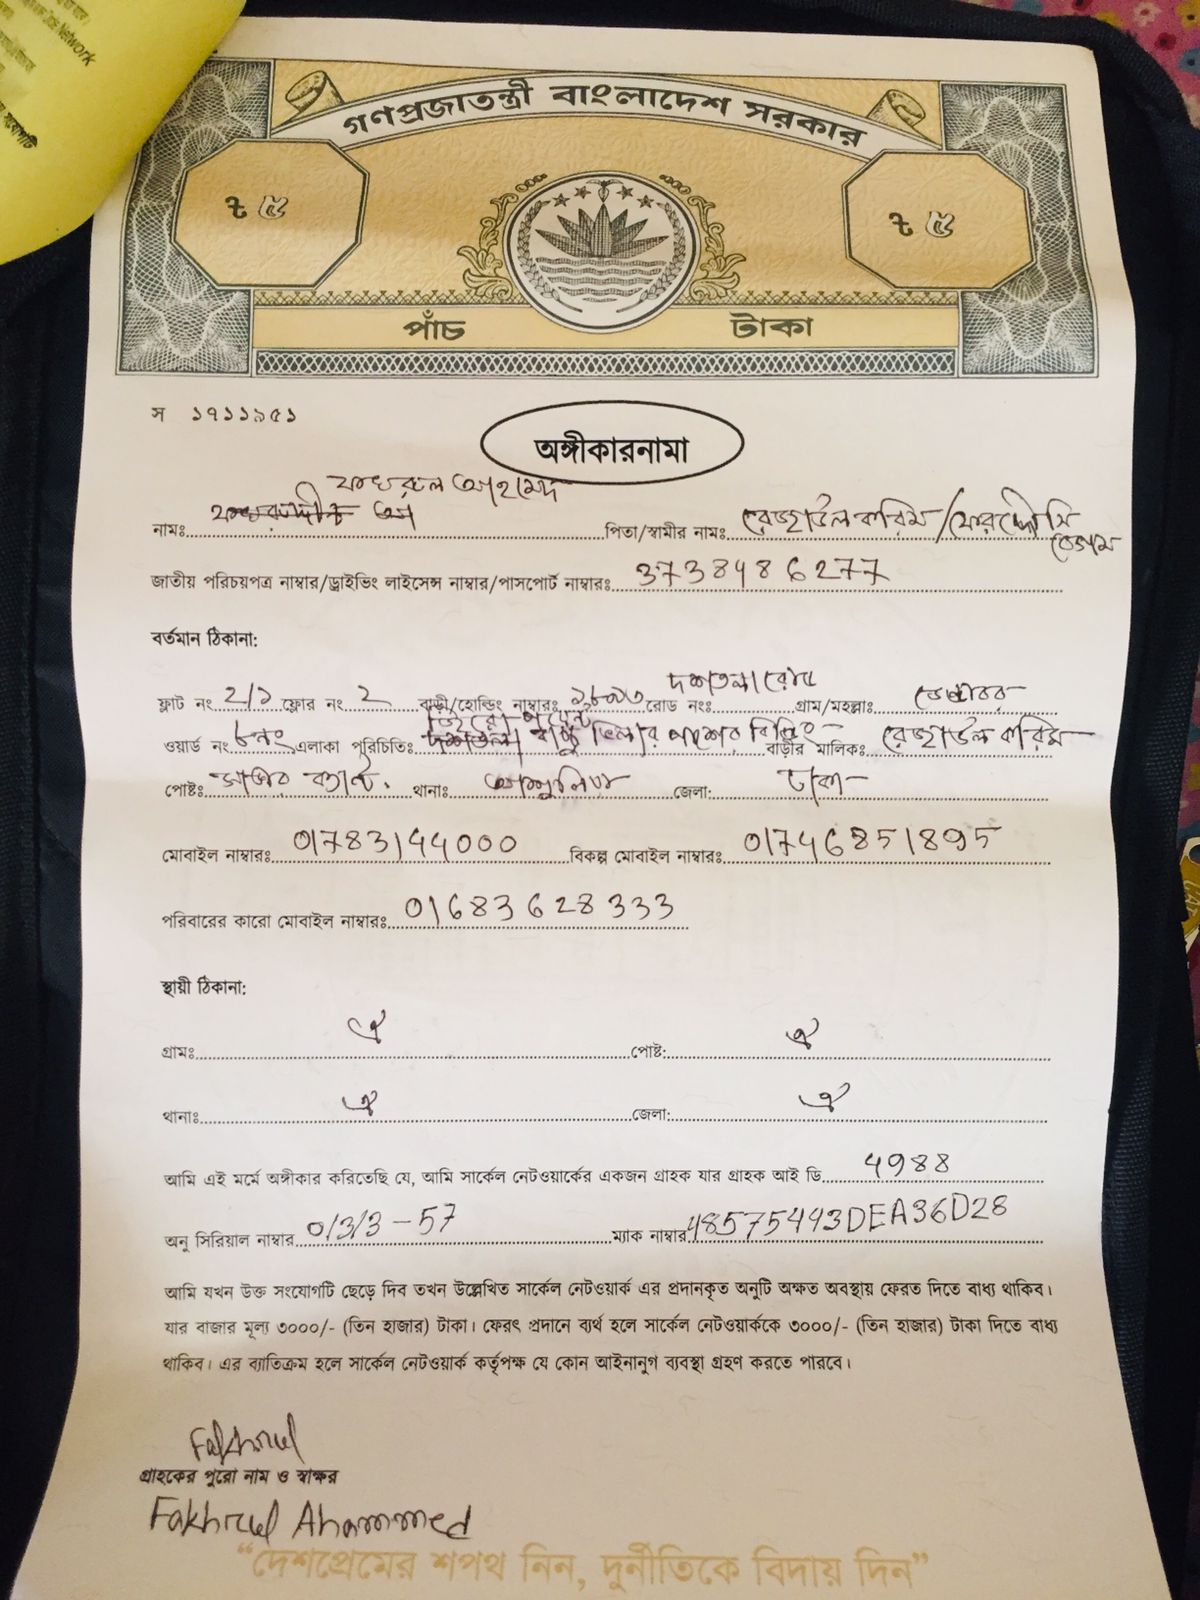 Network
গণপ্রজাতন্ত্রী বাংলাদেশ সরকার
৳ ৫ ৳ ৫
পাঁচ টাকা
স ১৭১১৯৫১
অঙ্গীকারনামা
ফখরুল আহমেদ
নামঃ পিতা/স্বামীর নামঃ রেজাউল করিম/ফেরদৌসি বেগম
জাতীয় পরিচয়পত্র নাম্বার/ড্রাইভিং লাইসেন্স নাম্বার/পাসপোর্ট নাম্বারঃ 3738486277
বর্তমান ঠিকানা:
ফ্লাট নং 2/১ ফ্লোর নং 2 বাড়ী/হোল্ডিং নাম্বারঃ রোড নংঃ দশতলা রোড গ্রাম/মহল্লাঃ
ওয়ার্ড নং ৮নং এলাকা পরিচিতিঃ দশতলা ভিলার পাশের বিল্ডিং বাড়ীর মালিকঃ রেজাউল করিম
পোষ্টঃ সাভার ক্যান্ট. থানাঃ আশুলিয়া জেলা: ঢাকা
মোবাইল নাম্বারঃ 01783144000 বিকল্প মোবাইল নাম্বারঃ 01746851895
পরিবারের কারো মোবাইল নাম্বারঃ 01683628333
স্থায়ী ঠিকানা:
গ্রামঃ ঐ পোষ্ট: ঐ
থানাঃ ঐ জেলা: ঐ
আমি এই মর্মে অঙ্গীকার করিতেছি যে, আমি সার্কেল নেটওয়ার্কের একজন গ্রাহক যার গ্রাহক আই ডি 4988
অনু সিরিয়াল নাম্বার 0/3/3-57 ম্যাক নাম্বার 48575443DEA36D28
আমি যখন উক্ত সংযোগটি ছেড়ে দিব তখন উল্লেখিত সার্কেল নেটওয়ার্ক এর প্রদানকৃত অনুটি অক্ষত অবস্থায় ফেরত দিতে বাধ্য থাকিব।
যার বাজার মূল্য ৩০০০/- (তিন হাজার) টাকা। ফেরৎ প্রদানে ব্যর্থ হলে সার্কেল নেটওয়ার্ককে ৩০০০/- (তিন হাজার) টাকা দিতে বাধ্য
থাকিব। এর ব্যাতিক্রম হলে সার্কেল নেটওয়ার্ক কর্তৃপক্ষ যে কোন আইনানুগ ব্যবস্থা গ্রহণ করতে পারবে।
Fakhrul
গ্রাহকের পুরো নাম ও স্বাক্ষর
Fakhrul Ahammed
“দেশপ্রেমের শপথ নিন, দুর্নীতিকে বিদায় দিন”